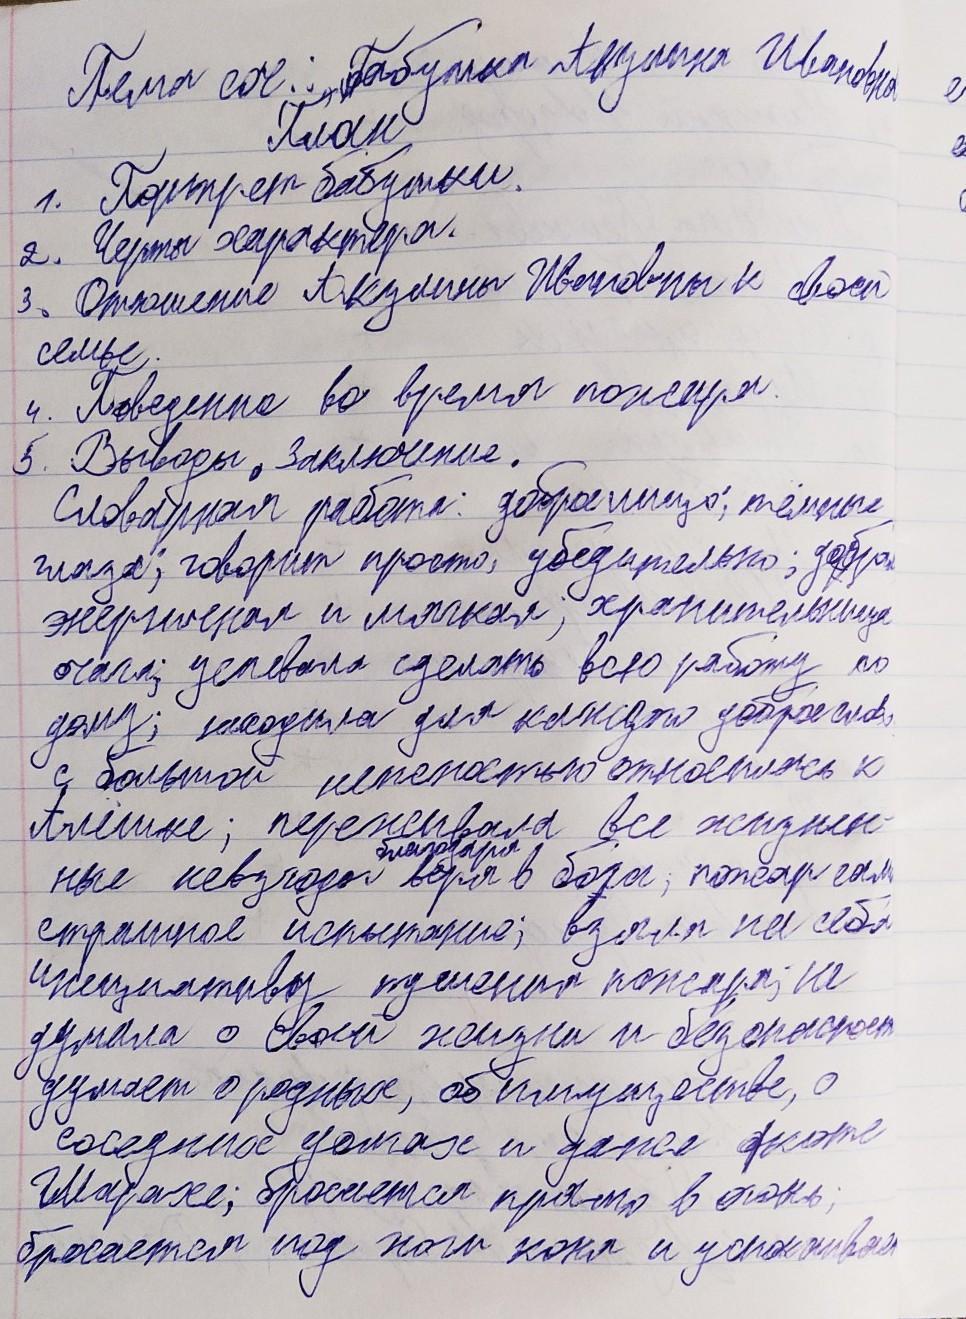 Тема соч.: „Бабушка Акулина Ивановна
План
1. Портрет бабушки.
2. Черты характера.
3. Отношение Акулины Ивановны к своей
семье.
4. Поведение во время пожара.
5. Выводы. Заключение.
Словарная работа: доброе лицо; тёмные
глаза; говорит просто, убедительно; добрая
энергичная и мягкая; хранительница
очага; успевала сделать всю работу по
дому; находила для каждого доброе слово,
с большой нежностью относилась к
Алёшке; переживала все жизнен-
благодаря
ные невзгоды вера в бога; пожар
страшное испытание; взяла на себя
инициативу тушения пожара; не
думала о своей жизни и безопасност
думает о родных, об имуществе, о
соседних домах и даже о коне
Шарапе; бросается прямо в огонь;
бросается под ноги коня и успокаивает